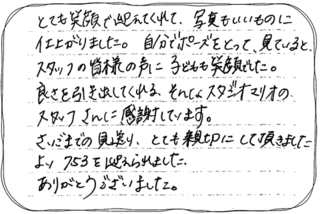 とても笑顔で迎えてくれて、写真もいいものに
仕上がりました。自分でポーズをとって、見ていると、
スタッフの皆様の声に子どもも笑顔でした。
良さを引き出してくれる、そんなスタジオマリオの
スタッフさんに感謝しています。
さいごまでの見送り、とても親切にして頂きました
より753を迎えられました。
ありがとうございました。